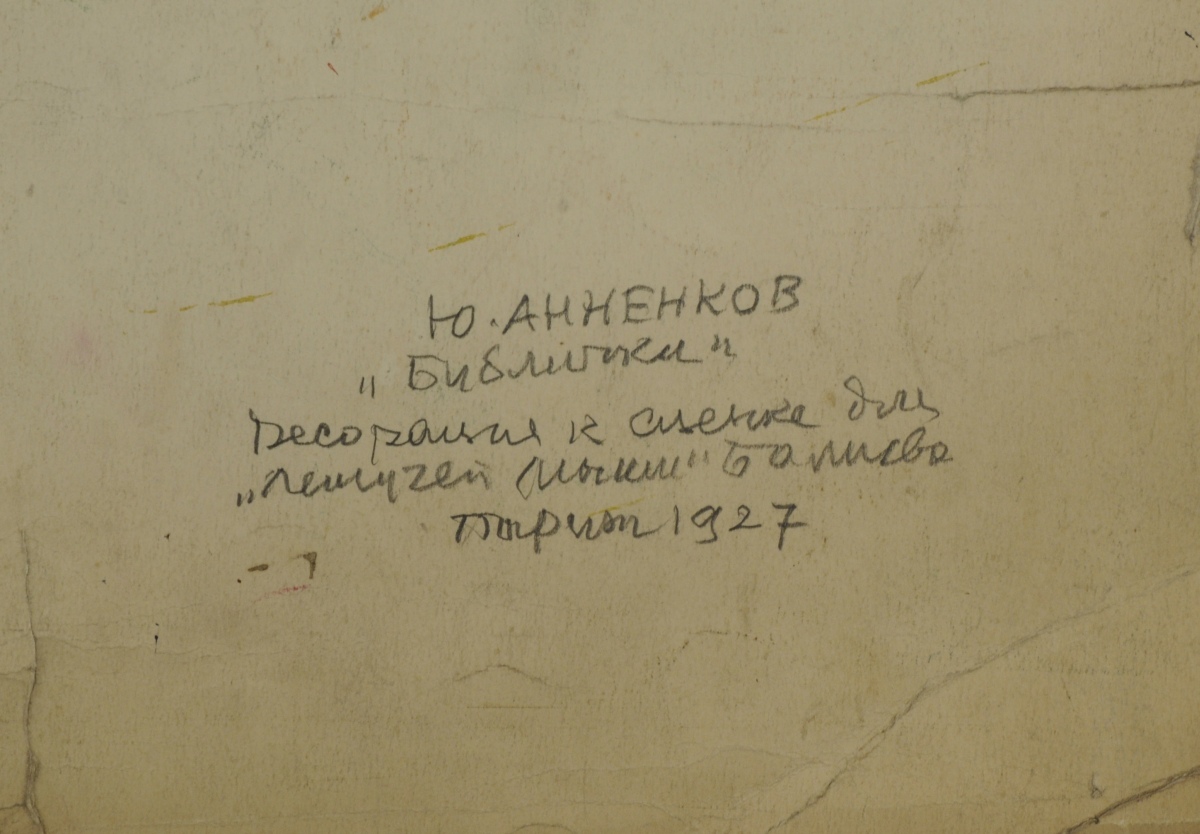 Ю. АННЕНКОВ
"Библіотека"
Декорация к сценке для
„Летучей Мыши" Балиева
Париж 1927